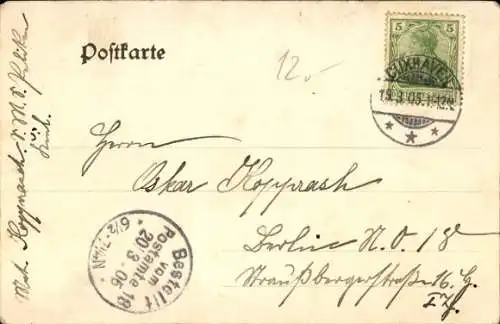 Postkarte
12.-
5 5
CUXHAVEN
19.3.05.1-12N.
Herrn
Oskar Kopprasch
Berlin N.O. 18
Straußbergerstraße 16. H.
Bestellt
vom
Postamte 18
20/3.05
6½-7¼N
Kopprasch